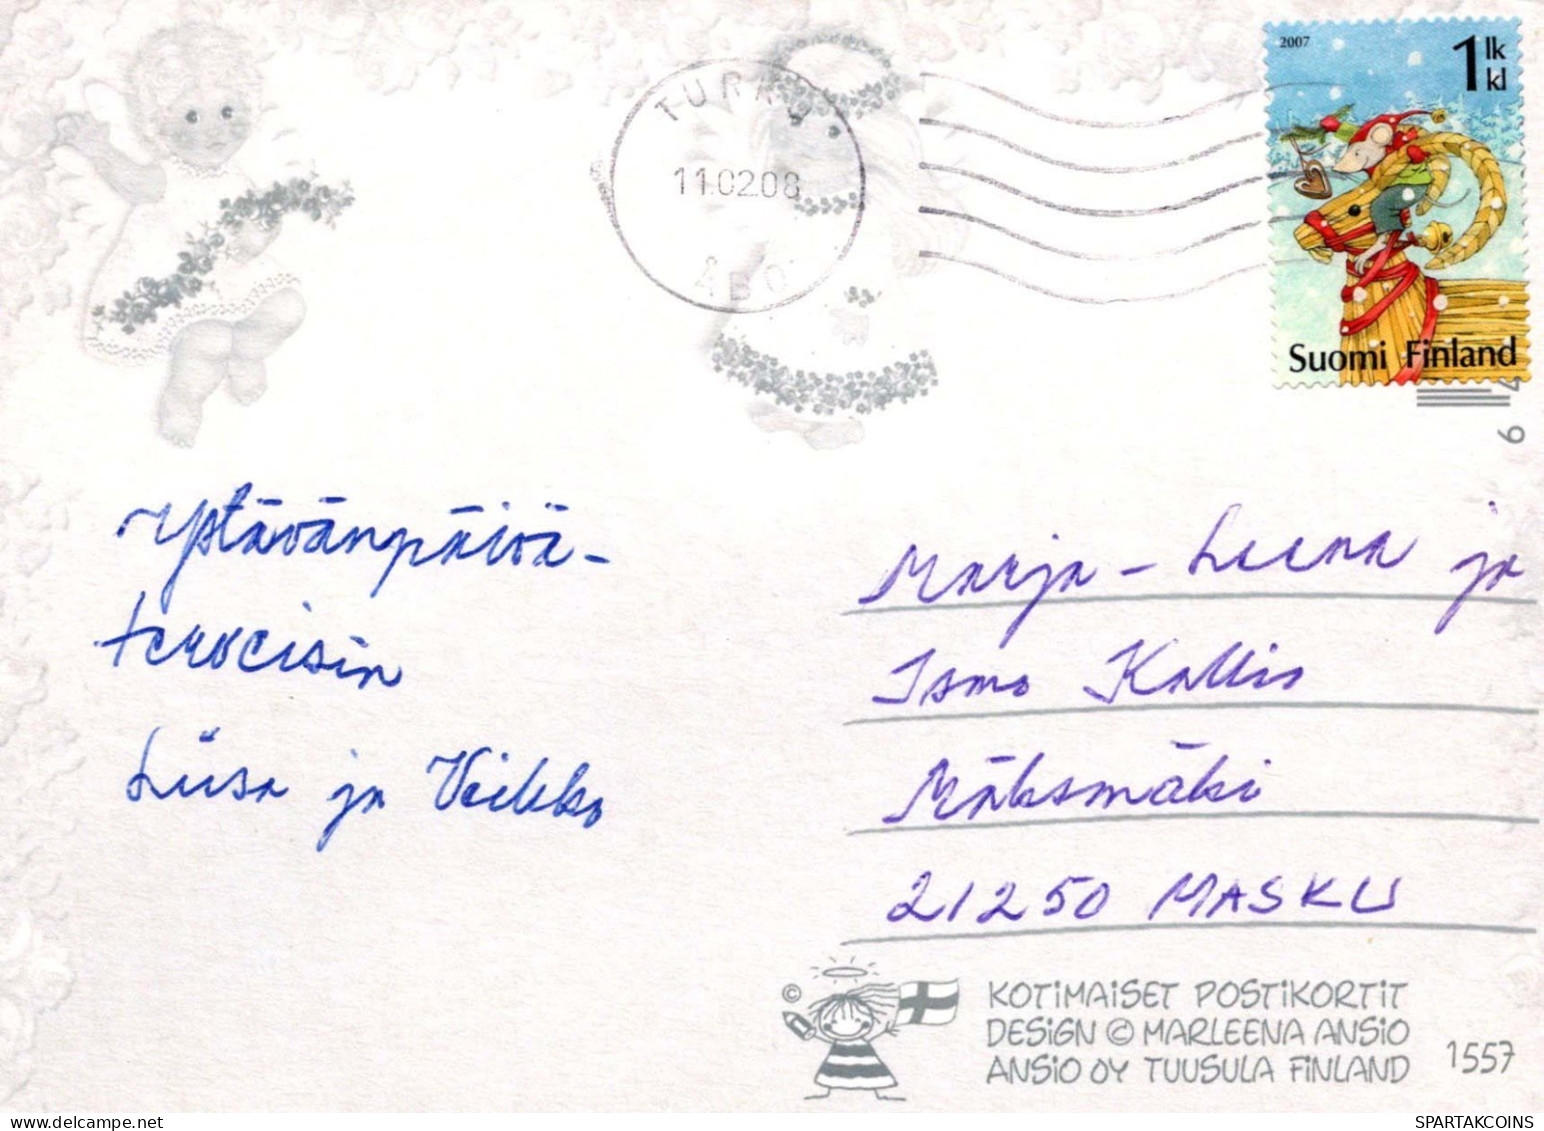 TURKU
11.02.08
ÅBO
2007
1 lk
kl
Suomi Finland
6
Ystävänpäivä-
terveisin
Liisa ja Veikko
Marja-Leena ja
Ismo Kallio
Mäksmäki
21250 MASKU
©
KOTIMAISET POSTIKORTIT
DESIGN © MARLEENA ANSIO
ANSIO OY TUUSULA FINLAND
1557
SPARTAKCOINS